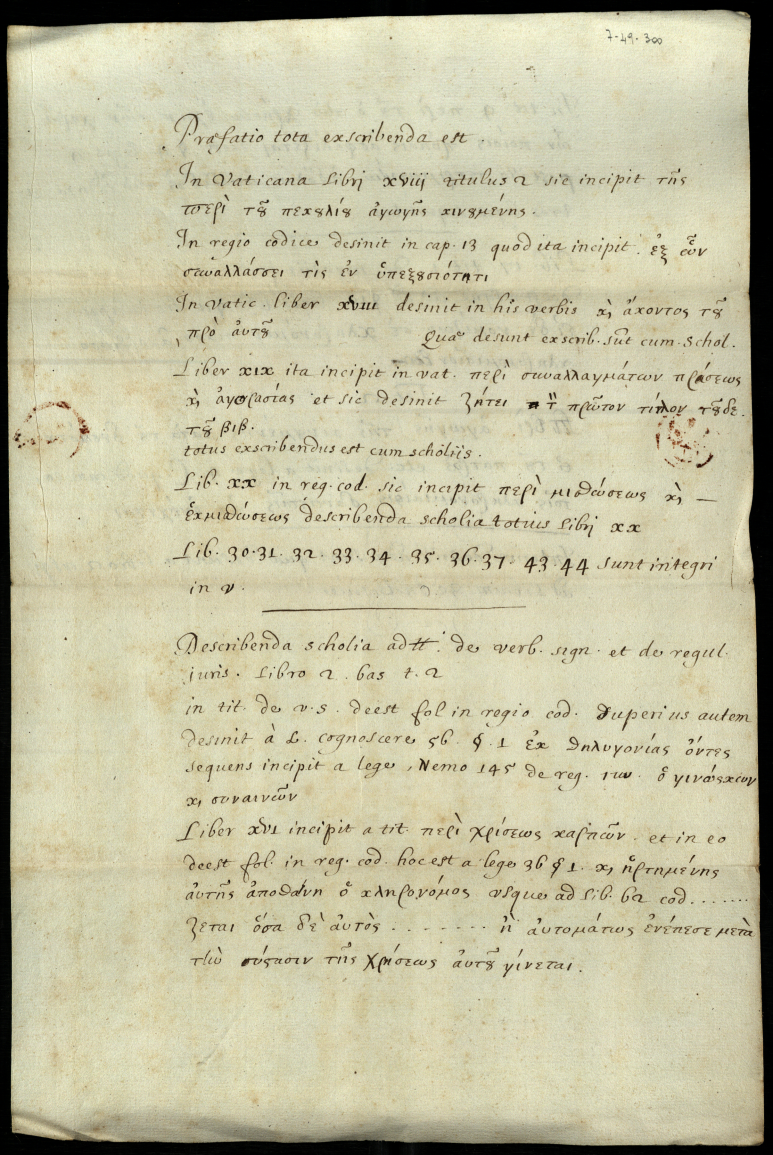 7-49-300
Præfatio tota exscribenda est.
In Vaticana Librj xviij titulus 2 sic incipit τῆς
περὶ τοῦ πεκουλίου ἀγωγῆς κινουμένης.
In regio codice desinit in cap. 13 quod ita incipit. ἐξ ὧν
συναλλάσσει τὶς ἐν ὑπεξουσιότητι
In Vatic. liber xviii desinit in his verbis καὶ ἄκοντος τοῦ
πρὸ αὐτοῦ Quæ desunt exscrib. sūt cum. schol.
Liber xix ita incipit in vat. περὶ συναλλαγμάτων πράσεως
καὶ ἀγορασίας et sic desinit ζήτει πρῶτον τίτλον τοῦδε.
τοῦ βιβ.
totus exscribendus est cum scholiis.
Lib. xx in reg. cod. sic incipit περὶ μισθώσεως καὶ —
ἐκμισθώσεως describenda scholia totius librj xx
Lib. 30. 31. 32. 33. 34. 35. 36. 37. 43. 44 sunt integri
in v.
Describenda scholia ad tt. de verb. sign. et de regul.
juris. Libro 2. bas t. 2
in tit. de v. s. deest fol in regio cod. superius autem
desinit à L. cognoscere 56. §. 1 ἐκ θηλυγονίας ὄντες
sequens incipit a lege, Nemo 145 de reg. iur. ὁ γινώσκων
καὶ συναινῶν
Liber xvi incipit a tit. περὶ χρίσεως καρπῶν. et in eo
deest fol. in reg. cod. hoc est a lege 36 § 1. καὶ ἠρτημένης
αὐτῆς ἀποθάνη ὁ κληρονόμος usque ad lib. 62 cod.......
ζεται ὅσα δὲ αὐτὸς ....... ἢ αὐτομάτως ἐνέπεσε μετὰ
τὴν σύστασιν τῆς χρίσεως αὐτοῦ γίνεται.